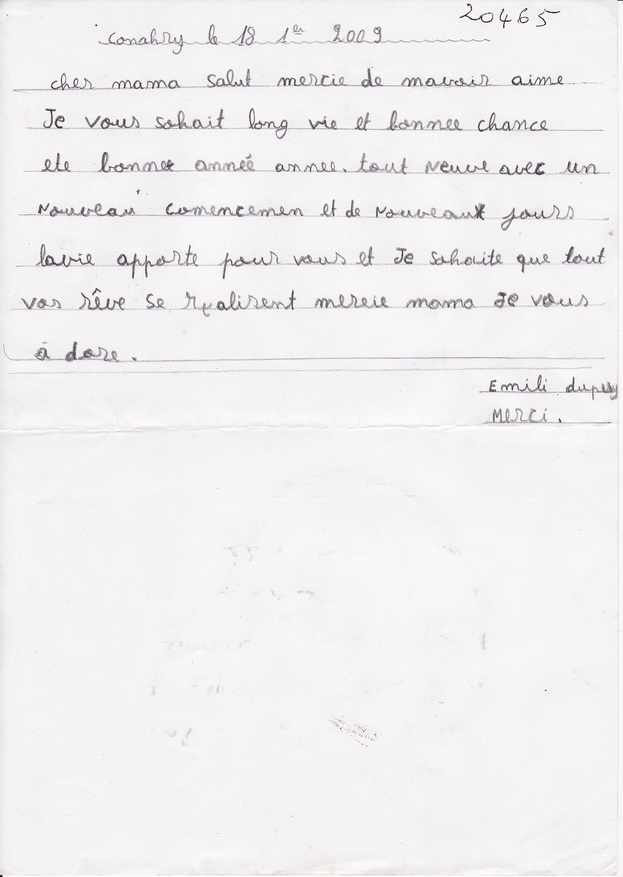 20465
conahry le 18 1er 2009
cher mama salut mercie de mavoir aime
Je vous sohait long vie et bonnee chance
ete bonnee année annee. tout neuve avec un
nouveau comencemen et de nouveaux jours
lavie apporte pour vous et Je sohaite que tout
vos rêve se realisent mercie mama Je vous
à dore.
Emili dupuy
Merci.